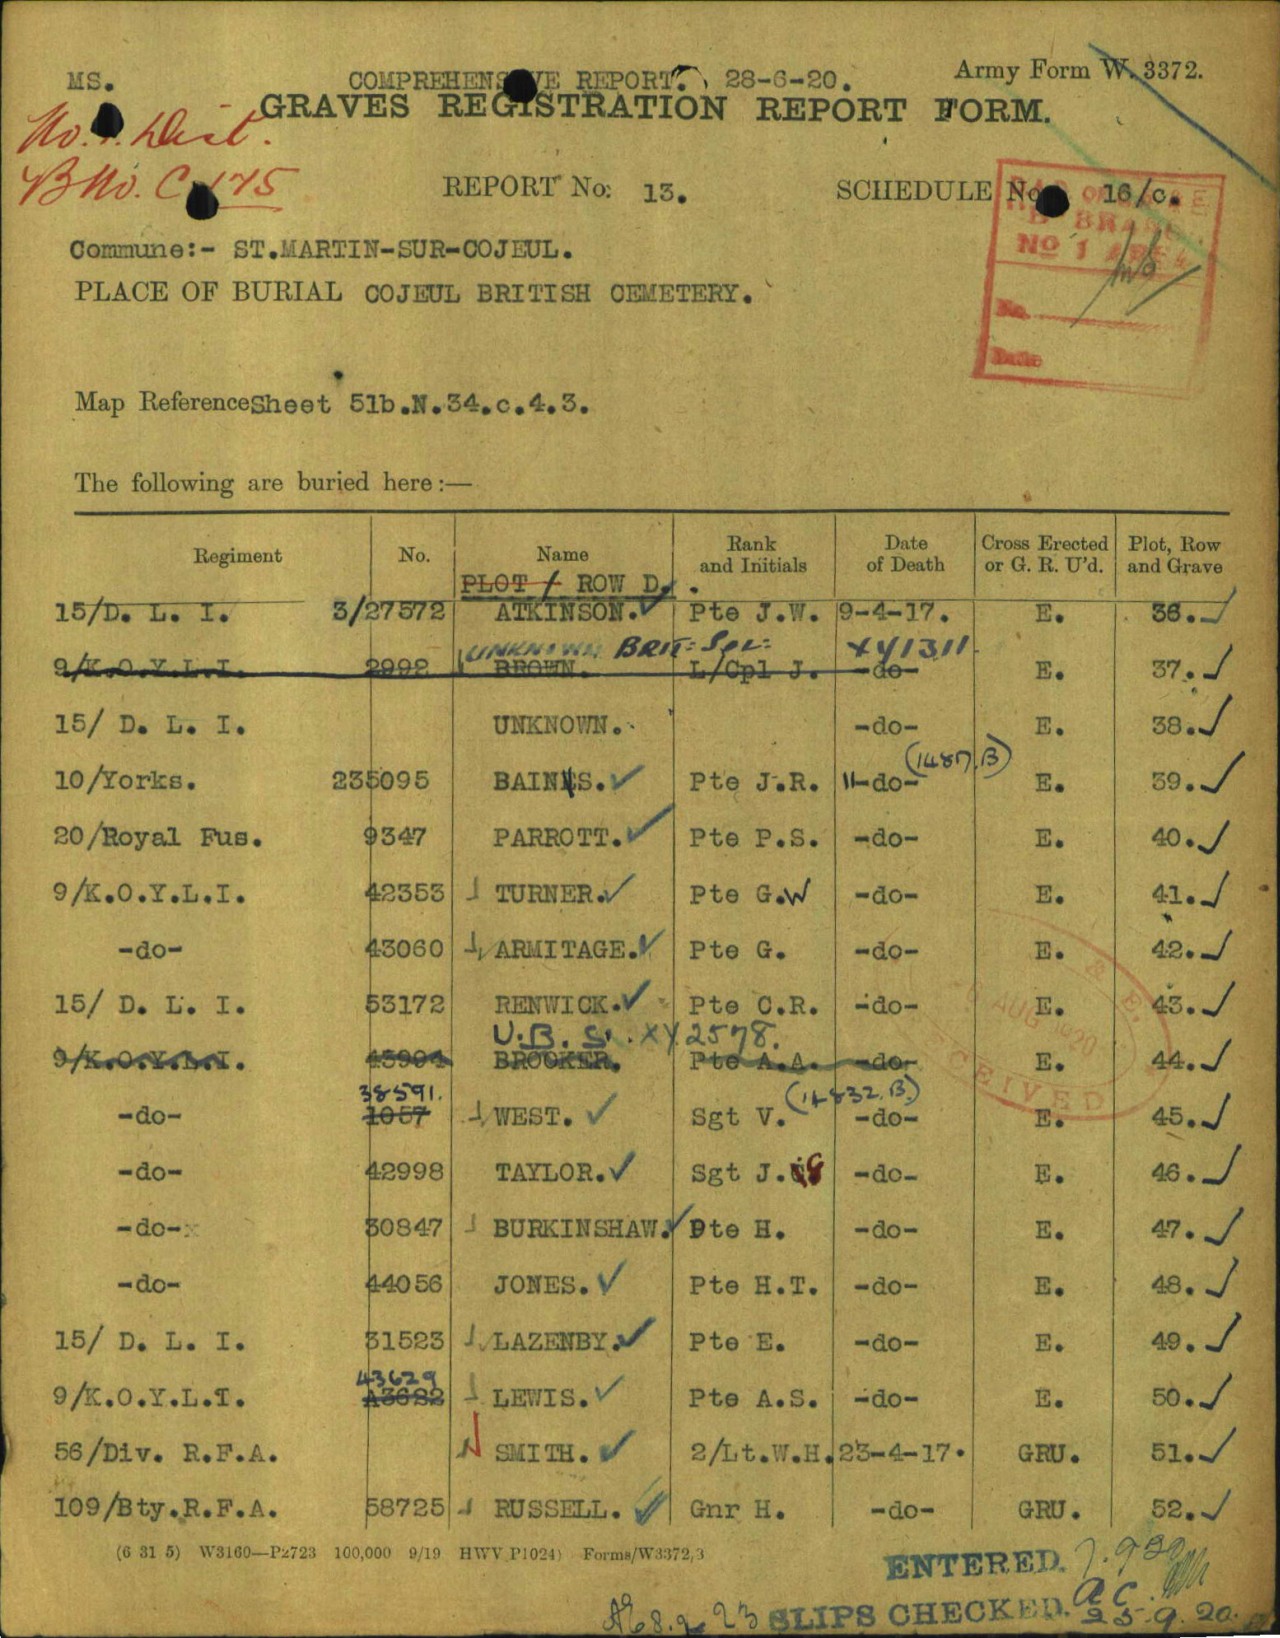 MS. COMPREHENSIVE REPORT. 28-6-20. Army Form W. 3372.
GRAVES REGISTRATION REPORT FORM.
No. 1. Dist.
B No. C 175
REPORT No: 13. SCHEDULE No 16/c.
No 1 AREA
No.
Date
Commune:- ST.MARTIN-SUR-COJEUL.
PLACE OF BURIAL COJEUL BRITISH CEMETERY.
Map Reference Sheet 51b.N.34.c.4.3.
The following are buried here:—
Regiment No. Name Rank and Initials Date of Death Cross Erected or G. R. U'd. Plot, Row and Grave
PLOT / ROW D.
15/D. L. I. 3/27572 ATKINSON. Pte J.W. 9-4-17. E. 36.
UNKNOWN BRIT: Sol: XY1311
9/K.O.Y.L.I. 2992 BROWN. L/Cpl J. -do- E. 37.
15/ D. L. I. UNKNOWN. -do- E. 38.
(1487.B)
10/Yorks. 235095 BAINES. Pte J.R. 11-do- E. 39.
20/Royal Fus. 9347 PARROTT. Pte P.S. -do- E. 40.
9/K.O.Y.L.I. 42353 TURNER. Pte G.W -do- E. 41.
-do- 43060 ARMITAGE. Pte G. -do- E. 42.
15/ D. L. I. 53172 RENWICK. Pte C.R. -do- E. 43.
U.B.S. XY2578.
9/K.O.Y.L.I. 45904 BROOKER. Pte A.A. -do- E. 44.
38591. (14832.B.)
-do- 1057 WEST. Sgt V. -do- E. 45.
-do- 42998 TAYLOR. Sgt J. G -do- E. 46.
-do- 30847 BURKINSHAW. Pte H. -do- E. 47.
-do- 44056 JONES. Pte H.T. -do- E. 48.
15/ D. L. I. 31523 LAZENBY. Pte E. -do- E. 49.
43629
9/K.O.Y.L.I. A3682 LEWIS. Pte A.S. -do- E. 50.
56/Div. R.F.A. SMITH. 2/Lt.W.H. 23-4-17. GRU. 51.
109/Bty.R.F.A. 58725 RUSSELL. Gnr H. -do- GRU. 52.
AUG 1920
RECEIVED
(6 31 5) W3160—P2723 100,000 9/19 HWV P1024) Forms/W3372,3
ENTERED. 7.920
SLIPS CHECKED. AC. 25.9.20.